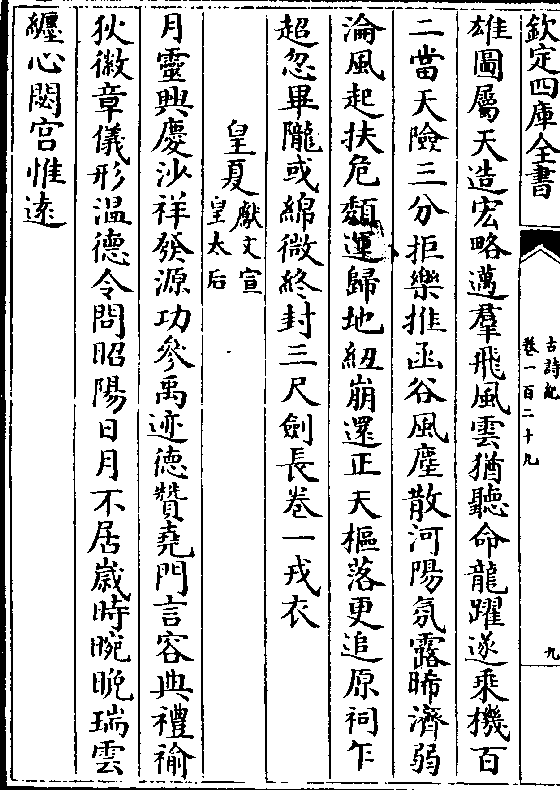 欽定四庫全書
古詩紀
卷一百二十九
九
雄圖屬天造宏略邁羣飛風雲猶聽命龍躍遂乘機百
二當天險三分拒樂推函谷風塵散河陽氛露晞濟弱
淪風起扶危頽運歸地紐崩還正天樞落更追原祠乍
超忽畢隴或綿微終封三尺劍長卷一戎衣
皇夏
獻文宣
皇太后
月靈興慶沙祥發源功參禹迹德贊堯門言容典禮褕
狄徽章儀形温德令問昭陽日月不居歲時晼晚瑞雲
纒心閟宫惟逺